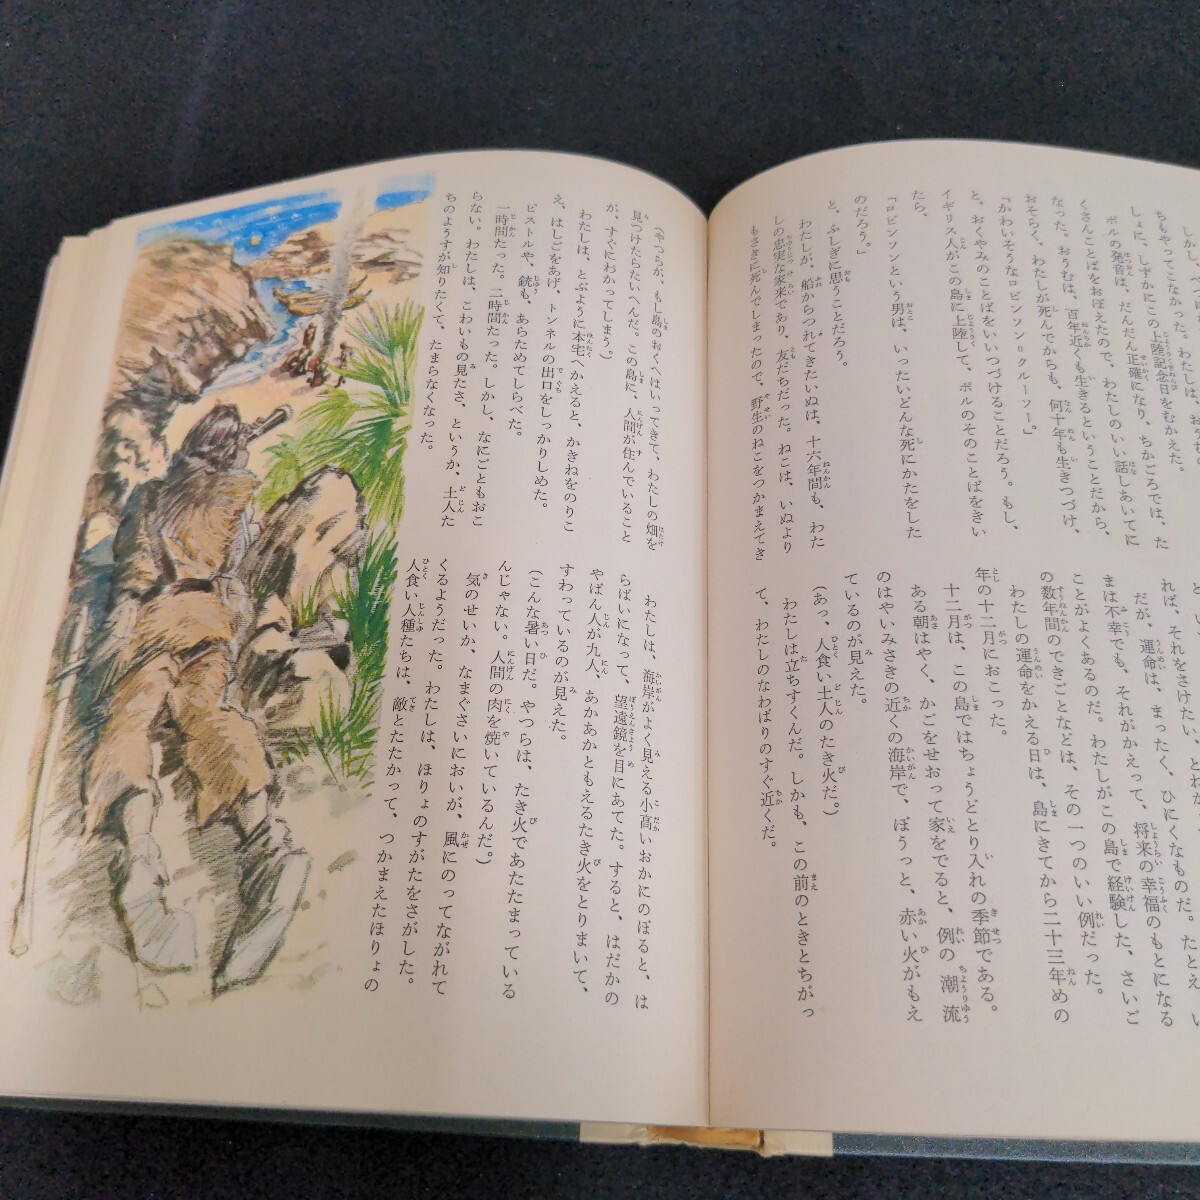 ちもやってこなかった。わたしは、おうむ
しょに、しずかにこの上陸記念日をむかえた。
ポルの発音は、だんだん正確になり、ちかごろでは、た
くさんことばをおぼえたので、わたしのいい話しあいてに
なった。おうむは、百年近くも生きるということだから、
おそらく、わたしが死んでからも、何十年も生きつづけ、
「かわいそうなロビンソン＝クルーソー」
と、おくやみのことばをいいつづけることだろう。もし、
イギリス人がこの島に上陸して、ポルのそのことばをきい
たら、
「ロビンソンという男は、いったいどんな死にかたをした
のだろう。」
と、ふしぎに思うことだろう。
わたしが、船からつれてきたいぬは、十六年間も、わた
しの忠実な家来であり、友だちだった。ねこは、いぬより
もさきに死んでしまったので、野生のねこをつかまえてき
れば、それをさけた
だが、運命は、まったく、ひにくなものだ。たとえ、い
まは不幸でも、それがかえって、将来の幸福のもとになる
ことがよくあるのだ。わたしがこの島で経験した、さいご
の数年間のできごとなどは、その一つのいい例だった。
わたしの運命をかえる日は、島にきてから二十三年めの
年の十二月におこった。
十二月は、この島ではちょうどとり入れの季節である。
ある朝はやく、かごをせおって家をでると、例の潮流
のはやいみさきの近くの海岸で、ぼうっと、赤い火がもえ
ているのが見えた。
（あっ、人食い土人のたき火だ。）
わたしは立ちすくんだ。しかも、この前のときとちがっ
て、わたしのなわばりのすぐ近くだ。
（やつらが、もし島のおくへはいってきて、わたしの畑を
見つけたらたいへんだ。この島に、人間が住んでいること
が、すぐにわかってしまう。）
わたしは、とぶように本宅へかえると、かきねをのりこ
え、はしごをあげ、トンネルの出口をしっかりしめた。
ピストルや、銃も、あらためてしらべた。
一時間たった。二時間たった。しかし、なにごともおこ
らない。わたしは、こわいもの見たさ、というか、土人た
ちのようすが知りたくて、たまらなくなった。
わたしは、海岸がよく見える小高いおかにのぼると、は
らばいになって、望遠鏡を目にあてた。すると、はだかの
やばん人が九人、あかあかともえるたき火をとりまいて、
すわっているのが見えた。
（こんな暑い日だ。やつらは、たき火であたたまっている
んじゃない。人間の肉を焼いているんだ。）
気のせいか、なまぐさいにおいが、風にのってながれて
くるようだった。わたしは、ほりょのすがたをさがした。
人食い人種たちは、敵とたたかって、つかまえたほりょの